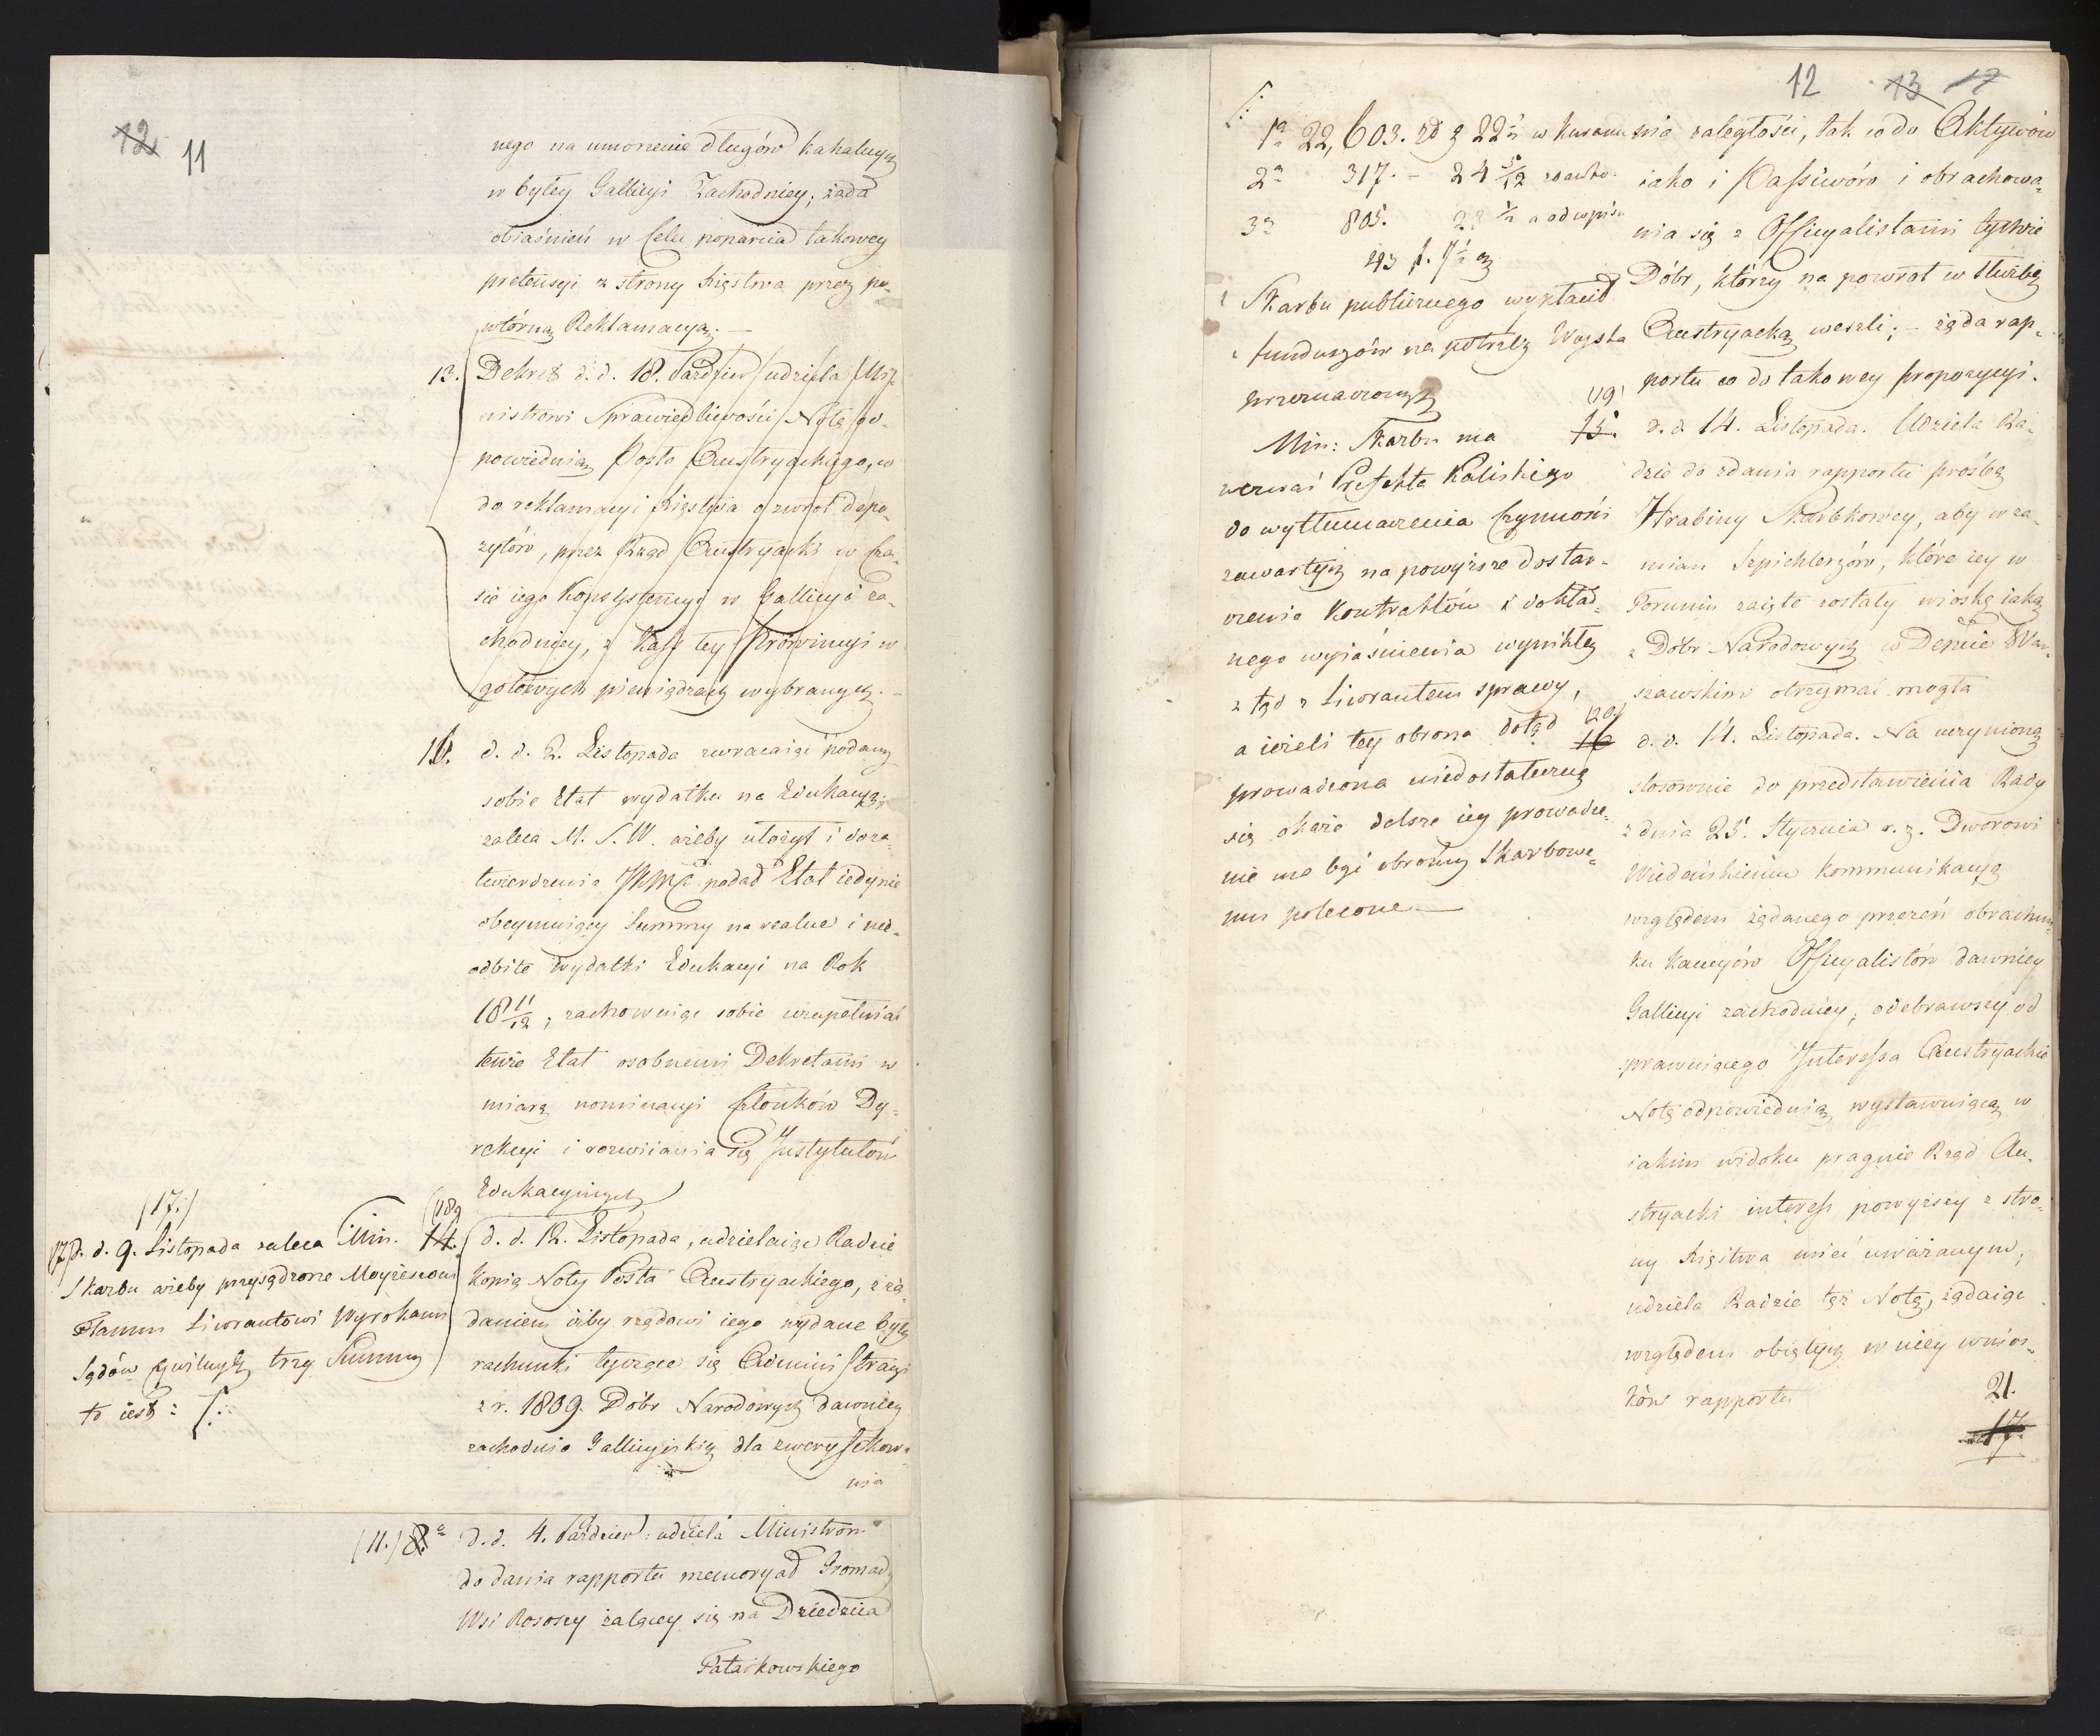 12 11
nego na umorzenie długów kahalnych
w byłey Gallicyi Zachodniey; żąda
obiaśnień w Celu poparcia takowey
pretensyi z strony Xięstwa przez po-
wtórną Reklamacyą. —
13. Dekret d. d. 18. Paździer udziela Mi-
nistrowi Sprawiedliwości Notę od-
powiednią Posła Austryackiego, co
do reklamacyi Xięstwa o zwrot depo-
zytów, przez Rząd Austryacki w Cza-
sie iego Konsystencyi w Gallicyi za-
chodniey, z Kass tey Prowincyi w
gotowych pieniądzach wybranych. —
16. d. d. 2. Listopada zwracaiąc podany
sobie Etat wydatku na Edukacyą,
zaleca M. S. W. ażeby ułożył i do za-
twierdzenia JKMći podał Etat iedynie
obeymuiący Summy na realne i nie-
odbite wydatki Edukacyi na Rok
18 11/12; zachowuiąc sobie uzupełniać
tenże Etat osobnemi Dekretami w
miarę nominacyi Członków Dy-
rekcyi i rozwiiania się Instytutów
Edukacyinych
(17.)
17. d. d. 9. Listopada zaleca Min.
Skarbu ażeby przysądzone Moyżeszowi
Flamm Liwrantowi Wyrokami
Sądów Cywilnych trzy Summy
to iest: /:
(18)
14. d. d. 12. Listopada, udzielaiąc Radzie
Kopią Noty Posła Austryackiego, z żą-
daniem iżby rządowi iego wydane były
rachunki tyczące się Administracyi
z r. 1809. Dóbr Narodowych dawniey
zachodnio Gallicyiskich dla zweryfikowa-
nia
(11.) 8.a d. d. 4. Paździer: udziela Ministrom
do dania rapportu memoryał Gromady
Wsi Rososzy żalącey się na Dziedzica
Tatarkowskiego
12 13 17
/:
1a 22,603. zł g 22½ w kuranci
2a 317. – 24 5/12
3a 805. 22 ½ a odwpisu
43 f. 7½ g
z Skarbu publicznego wypłacił
z funduszów na potrzeby Woyska
przeznaczonych
Min: Skarbu ma
wezwać Prefekta Kaliskiego
do wytłumaczenia Czynności
zawartych na powyższe dostar-
czenia Kontraktów i dokład-
nego wyiaśnienia wynikłey
z tąd z Liwrantem sprawy,
a ieżeli tey obrona dotąd
prowadzona niedostateczną
się okaże dalsze iey prowadze-
nie ma być obrońcy Skarbowe-
mu polecone —
nia zaległości, tak co do Aktywów
iako i Passiwów i obrachowa-
nia się z Officyalistami tychże
Dóbr, którzy na powrót w służbę
Austryacką weszli; – żąda rap-
portu co do takowey propozycyi.
(19)
15. d. d. 14. Listopada. Udziela Ra-
dzie do zdania rapportu prośbę
Hrabiny Skarbkowey, aby w za-
mian Szpichlerzów, które iey w
Toruniu zaięte zostały wioskę iaką
z Dóbr Narodowych w Depcie War-
szawskim otrzymać mogła
(20)
16 d. d. 14. Listopada. Na uczynioną
stosownie do przedstawienia Rady
z dnia 25. Stycznia r. z. Dworowi
Wiedeńskiemu Kommunikacyą
względem żądanego przezeń obrachun-
ku Kaucyów Officyalistów dawniey
Gallicyi zachodniey, odebrawszy od
sprawuiącego Interessa Austryackie
Notę odpowiednią wystawuiącą w
iakim widoku pragnie Rząd Au-
stryacki interess powyższy z stro-
ny Xięstwa mieć uważanym,
udziela Radzie tęż Notę, żądaiąc
względem obiętych w niey wnios-
ków rapportu
21.
17.